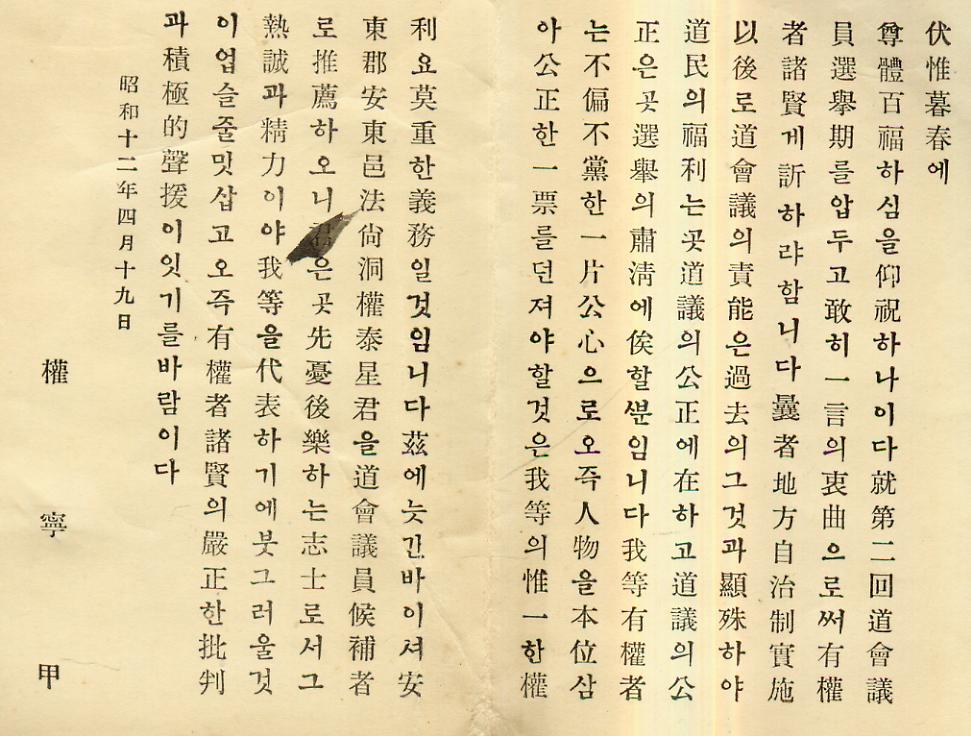 伏惟暮春에
尊體百福하심을仰祝하나이다就第二回道會議
員選擧期를압두고敢히一言의衷曲으로써有權
者諸賢게訴하랴함니다曩者地方自治制實施
以後로道會議의責能은過去의그것과顯殊하야
道民의福利는곳道議의公正에在하고道議의公
正은곳選擧의肅淸에俟할분임니다我等有權者
는不偏不黨한一片公心으로오즉人物을本位삼
아公正한一票를던져야할것은我等의惟一한權
利요莫重한義務일것임니다茲에늣긴바이셔安
東郡安東邑法尙洞權泰星君을道會議員候補者
로推薦하오니君은곳先憂後樂하는志士로서그
熱誠과精力이야我等을代表하기에붓그러울것
이업슬줄밋삽고오즉有權者諸賢의嚴正한批判
과積極的聲援이잇기를바람이다
昭和十二年四月十九日
權寧甲